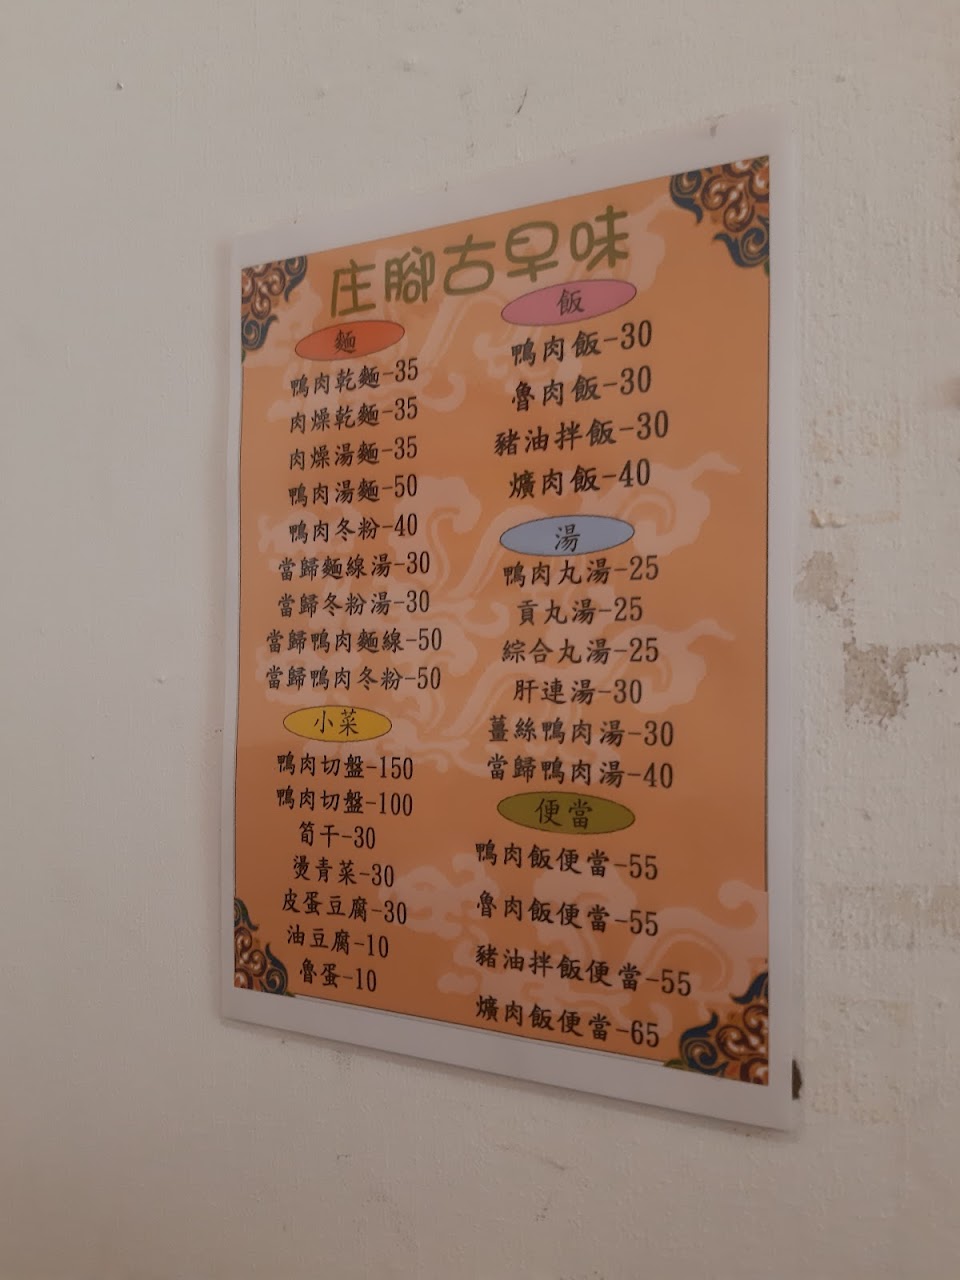 庄腳古早味
麵
鴨肉乾麵-35
肉燥乾麵-35
肉燥湯麵-35
鴨肉湯麵-50
鴨肉冬粉-40
當歸麵線湯-30
當歸冬粉湯-30
當歸鴨肉麵線-50
當歸鴨肉冬粉-50
小菜
鴨肉切盤-150
鴨肉切盤-100
筍干-30
燙青菜-30
皮蛋豆腐-30
油豆腐-10
魯蛋-10
飯
鴨肉飯-30
魯肉飯-30
豬油拌飯-30
爌肉飯-40
湯
鴨肉丸湯-25
貢丸湯-25
綜合丸湯-25
肝連湯-30
薑絲鴨肉湯-30
當歸鴨肉湯-40
便當
鴨肉飯便當-55
魯肉飯便當-55
豬油拌飯便當-55
爌肉飯便當-65